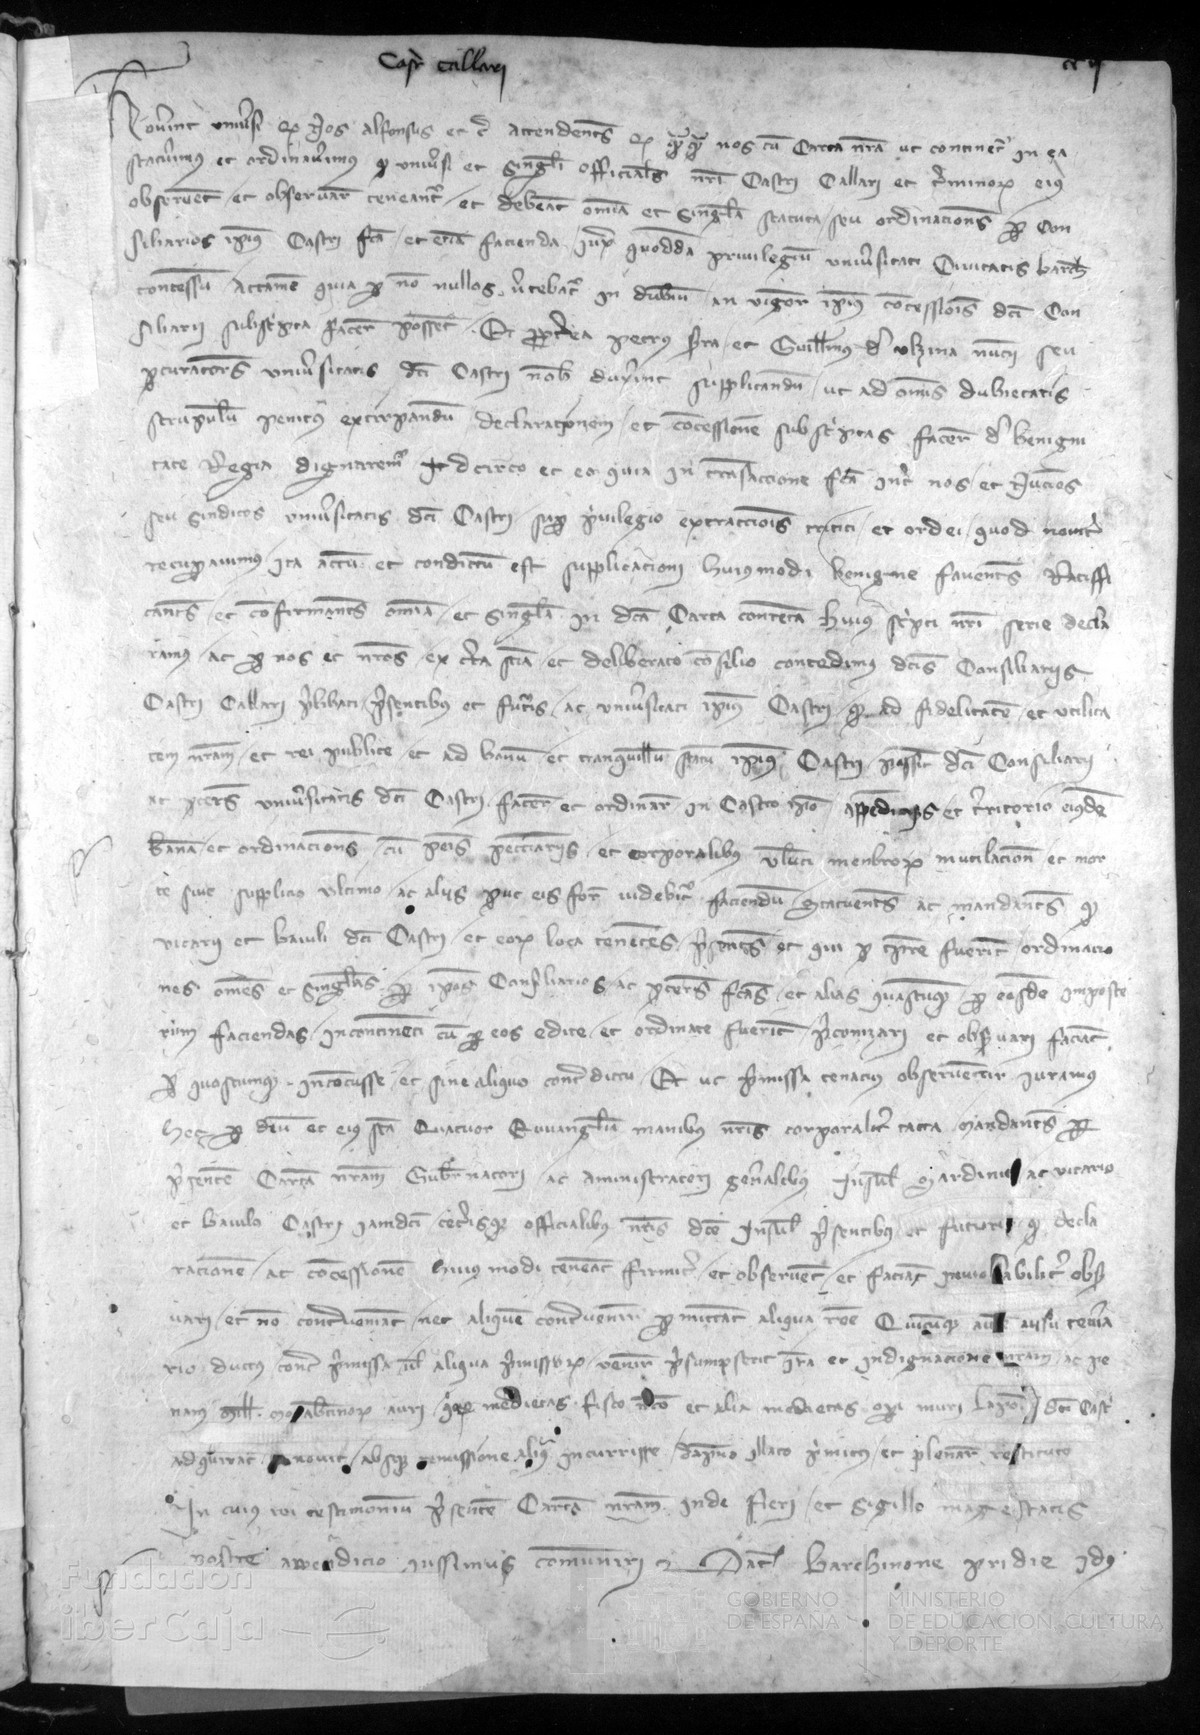 Castr Callari
Noverint universi q Nos Alfonsus et c Attendentes q quamquam nos cum Carta nra ut continet in ea
statuerimus et ordinaverimus q universi et singli officiales nri Castri Callari et terminor eius
observent et observar teneant et debeant omia et singla statuta seu ordinaciones p Con
siliarios ipius Castri fca et etia facienda iux quodda privilegiu universitati Civitatis barch
concessum Attame quia p no nullos vertebat in dubiu an vigor ipius concessiois dci Con
siliarii subscripta facer possent Et propterea petrus Serra et Guillmus d ulzina nuncii seu
pcuratores universitatis dci Castri nob duxerint supplicandu ut ad omis dubietatis
scrupulu penitus extirpandu declarationem et concessione subscriptas facer d benigni
tate Regia dignaremur Idcirco et eo quia in transaccione fca int nos et Nuncios
seu sindicos universitatis dci Castri sup privilegio extraccois tritici et ordei quod noviter
recupavimus ita actu et condictu est supplicacioni huiusmodi benigne faventes Ratiffi
cantes et confirmantes omia et singla in dca Carta contenta huius scripti nri serie decla
ramus ac p nos et nros ex certa scia et deliberato consilio concedimus dcis Consiliariis
Castri Callari plibati psentibus et futuris ac universitati ipius Castri q ad fidelitate et utilita
tem nram et rei publice et ad bonu et tranquillu statu ipius Castri possint dci Consiliarii
ac pceres universitatis dci Castri facer et ordinar in Castro pio appendiciis et territorio eiusde
banna et ordinaciones cu penis pecuiariis et corporalibus veluti menbror mutilacion et mor
te sive supplicio ultimo ac aliis puc eis for videbit faciendu Statuentes ac mandantes q
vicarii et baiuli dci Castri et eor loca tenentes psentes et qui p tpre fuerint ordinacio
nes omes et singlas p ipos Consiliarios ac pceres fcas et alias quascumq p eosde imposte
rum faciendas incontineti cu p eos edite et ordinate fuerint pconizari et observari faciat
p quoscumq inconcusse et sine aliquo contradictu Et ut pmissa tenacius observentur iuramus
hec p deu et eius sca Quatuor Evvanglia manibus nris corporalit tacta Mandantes p
psente Carta nram Gubernatori ac aministratori generalibus Insule Sardinie ac vicario
et baiulo Castri iamdci ceterisq officialibus nris dce Insule psentibus et futuris q decla
racione ac concessione huiusmodi teneat firmit et observent et faciat inviolabilit obs
vari et no contraveniat nec aliquem contravenir pmittat aliqua roe Quicuq aut ausu temera
rio ductus cont pmissa vel aliqua pmissor venir psumpserit Ira et indignacione nram ac pe
nam Mill morabetinor auri quor medietas fisco nro et alia medietas opi muri dci Castri
adquirat se noverit absq remissione aliqua incurrisse dapno illato primitus et plenar restituto
In cuius rei testimoniu psente Carta nram inde fieri et sigillo magestatis
nostre appendicio iussimus comuniri Dat Barchinone pridie Idus
Fundación
iberCaja
GOBIERNO
DE ESPAÑA
MINISTERIO
DE EDUCACIÓN, CULTURA
Y DEPORTE